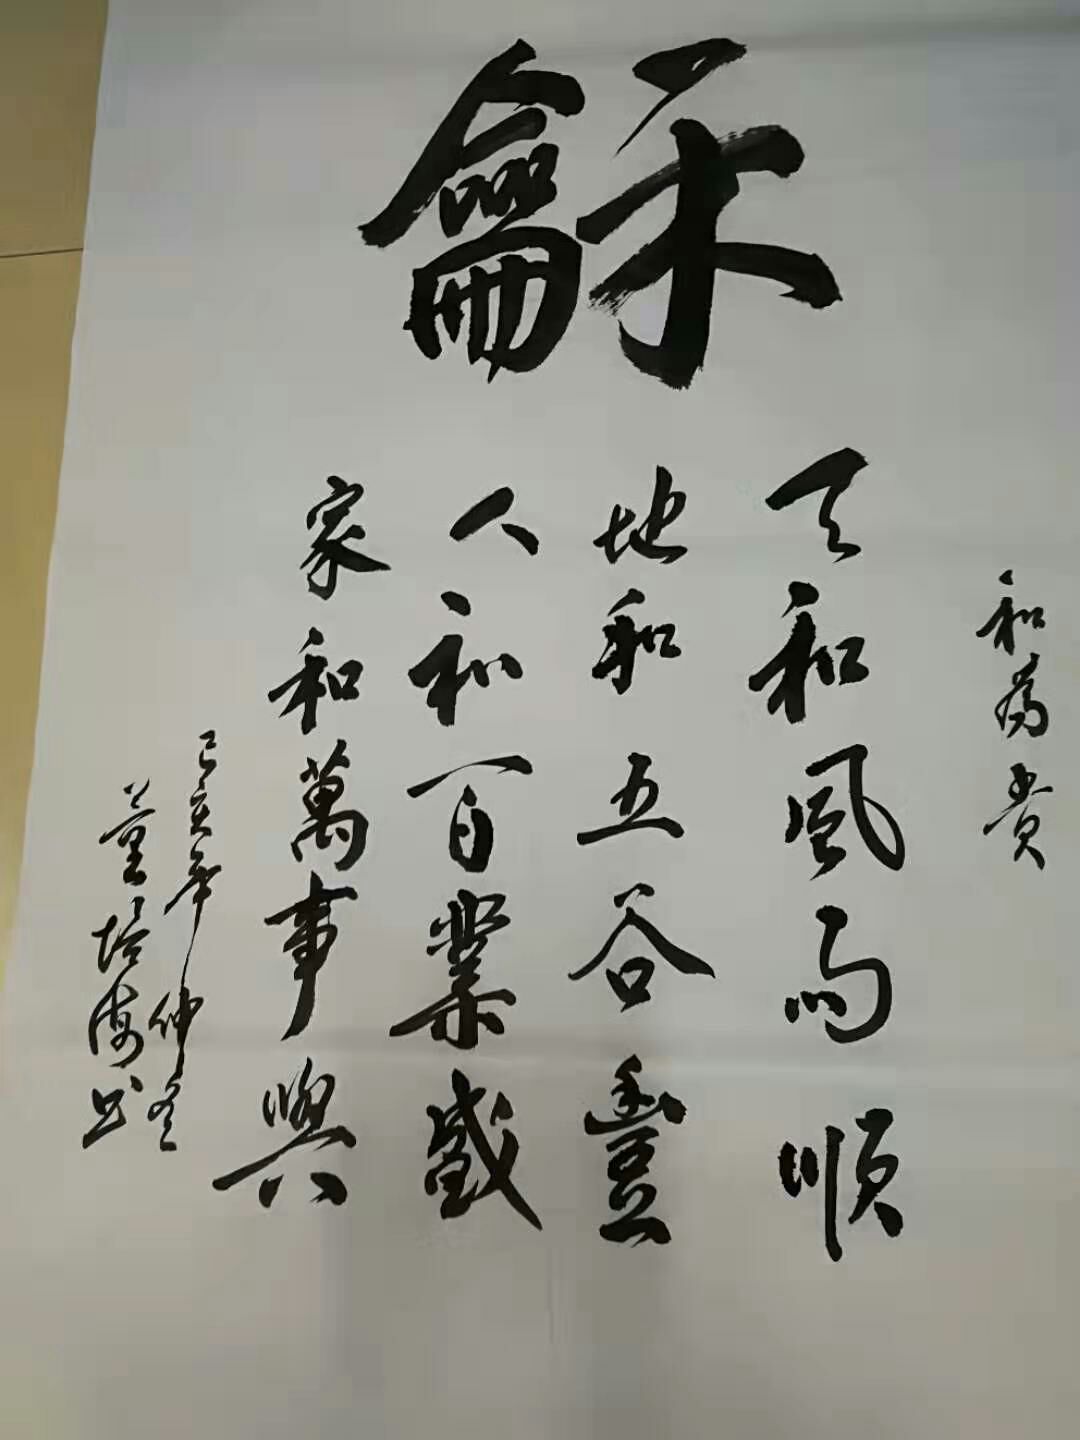 龢
和為貴
天和風雨順
地和五谷豐
人和百業盛
家和萬事興
己亥年仲冬
董培海书